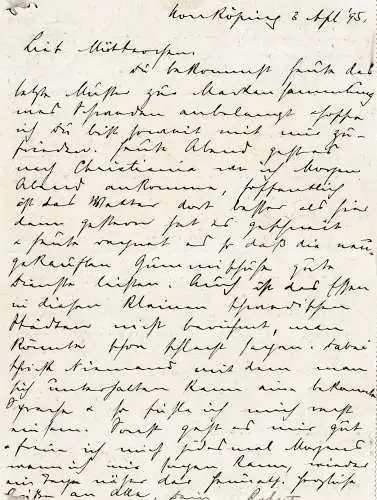 Norrköping 3 Apl '95.
Lieb Mütterchen.
Du bekommst heute das
letzte Muster zur Markensammlung
was Schweden anbelangt & hoffe
ich Du bist soweit mit mir zu-
frieden. Heute Abend geht es
nach Christiania wo ich Morgen
Abend ankomme, hoffentlich
ist das Wetter dort besser als hier
denn gestern hat es geschneit
& heute regnet es so daß die neu-
gekauften Gummischuhe gute
Dienste leisten. Auch ist das Essen
in diesen kleinen schwedischen
Städten nicht berühmt, man
könnte schon schlecht sagen. Dabei
Niemand mit dem man
sich unterhalten kann eine bekannte
Sprache & so fühle ich mich recht
einsam. Sonst geht es mir gut
& freue ich mich jedesmal Morgens
wenn ich mir sagen kann, wieder
ein Tag näher das
an alle, Dein